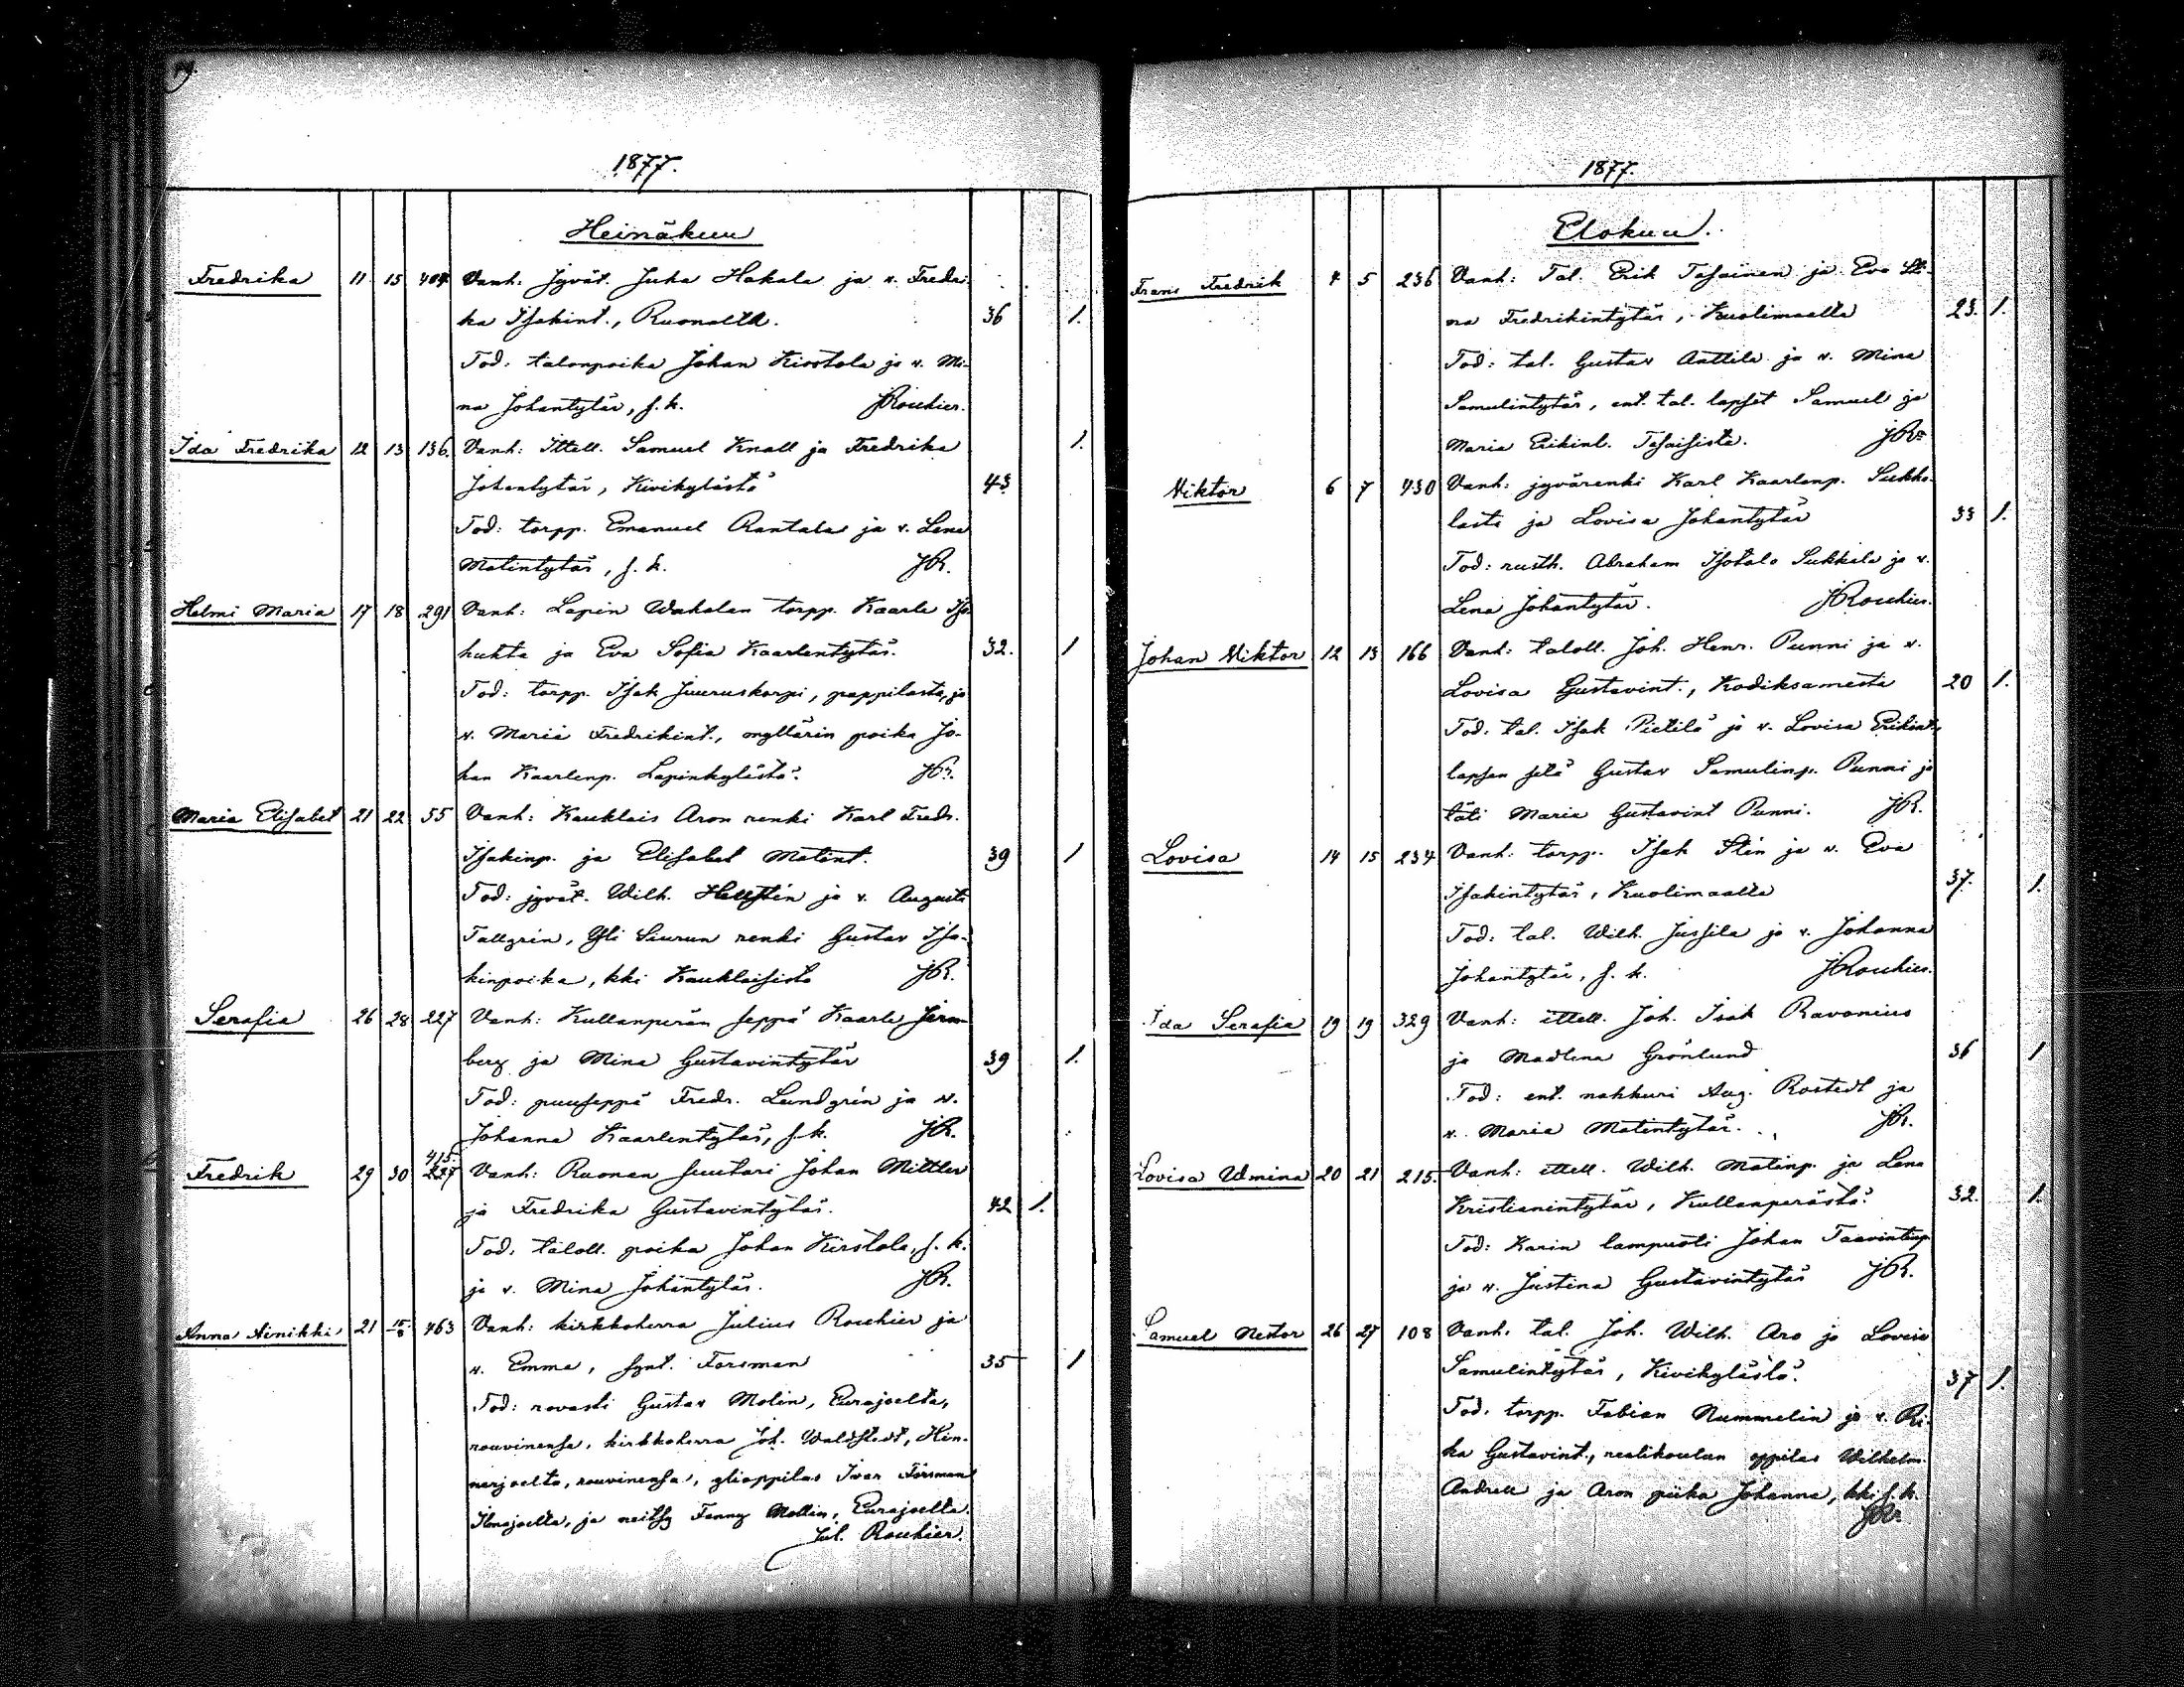 79.
1877.
Heinäkuu
Fredrika 11 15 404 Vanh. jyvät. Juha Hakala ja v. Fredri-
ka Isakint., Ruonalta. 36 1.
Tod: talonpoika Johan Kirstola ja v. Mi-
na Johantytär, s. k. JRoukier.
Ida Fredrika 12 13 136. Vanh: Ittell. Samuel Knall ja Fredrika 1.
Johantytär, Kivikylästä 43
Tod: torpp. Emanuel Rantala ja v. Lena
Matintytär, s. k. JR.
Helmi Maria 17 18 291 Vanh: Lapin Wahalan torpp. Kaarle Iso-
huhta ja Eva Sofia Kaarlentytär. 32. 1
Tod: torpp. Isak Juuruskorpi, pappilasta, ja
v. Maria Fredrikint., myllärin poika Jo-
han Kaarlenp. Lapinkylästä. JR.
Maria Elisabet 21 22 55 Vanh: Kauklais Aron renki Karl Fredr.
Isakinp. ja Elisabet Matint. 39 1
Tod: jyvät. Wilh. Hellstén ja v. Augusta
Tallgrén, Yli Siurun renki Gustav Isa-
kinpoika, kki Kauklaisista JR.
Serafia 26 28 227 Vanh: Kullanperän seppä Kaarle
berg ja Mina Gustavintytär 39 1.
Tod: puuseppä Fredr. Lundgrén ja v.
Johanna Kaarlentytär, s. k. JR.
415.
Fredrik 29 30 227 Vanh: Ruonan suutari Johan Mittler
ja Fredrika Gustavintytär. 42 1.
Tod: taloll. poika Johan Kirstola, s. k.
ja v. Mina Johantytär. JR.
Anna Ainikki 21 15/8 463 Vanh: kirkkoherra Julius Roukier ja
v. Emma, synt. Forsman 35 1
Tod: rovasti Gustav Molin, Eurajoelta,
rouvinensa, kirkkoherra Joh. Waldstedt, Hin-
nerjoelta, rouvinensa, ylioppilas Ivar Forsman
Ilmajoelta, ja neitsy Fanny Mollin, Eurajoelta.
Jul. Roukier.
1877.
Elokuu.
Frans Fredrik 4 5 236 Vanh: Tal. Erik Tasainen ja Eva Sti-
na Fredrikintytär, Kuolimaalta 23. 1.
Tod: tal. Gustav Anttila ja v. Mina
Samulintytär, ent. tal. lapset Samuel ja
Maria Erikint. Tasaisista. JR.
Viktor 6 7 430 Vanh: jyvärenki Karl Kaarlenp. Sukka-
lasta ja Lovisa Johantytär 33 1.
Tod: rusth. Abraham Isotalo Sukkala ja v.
Lena Johantytär. JRoukier.
Johan Viktor 12 13 166 Vanh: taloll. Joh. Henr. Punni ja v.
Lovisa Gustavint., Kodiksamesta 20 1.
Tod: tal. Isak Pietilä ja v. Lovisa Erikint.,
lapsen setä Gustav Samulinp. Punni ja
täti Maria Gustavint Punni. JR.
Lovisa 14 15 234 Vanh: torpp. Isak Stén ja v. Eva
Isakintytär, Kuolimaalta 37. 1.
Tod: tal. Wilh. Jussila ja v. Johanna
Johantytär, s. k. JRoukier.
Ida Serafia 19 19 329 Vanh: ittell. Joh. Isak Ravonius
ja Madlena Grönlund 36 1
Tod: ent. nahkuri Aug. Rostedt ja
v. Maria Matintytär. JR.
Lovisa Wmina 20 21 215. Vanh: ittell. Wilh. Matinp. ja Lena
Kristianintytär, Kullanperästä. 32. 1.
Tod: Karin lampuoti Johan Taavintinp
ja v. Justina Gustavintytär JR.
Samuel Nestor 26 27 108 Vanh. tal. Joh. Wilh. Aro ja Lovisa
Samulintytär, Kivikylästä. 37 1.
Tod. torpp. Fabian Nummelin ja v. Ri-
ka Gustavint., realikoulun oppilas Wilhelm
Andrell ja Aron piika Johanna, kki s. k.
JR.